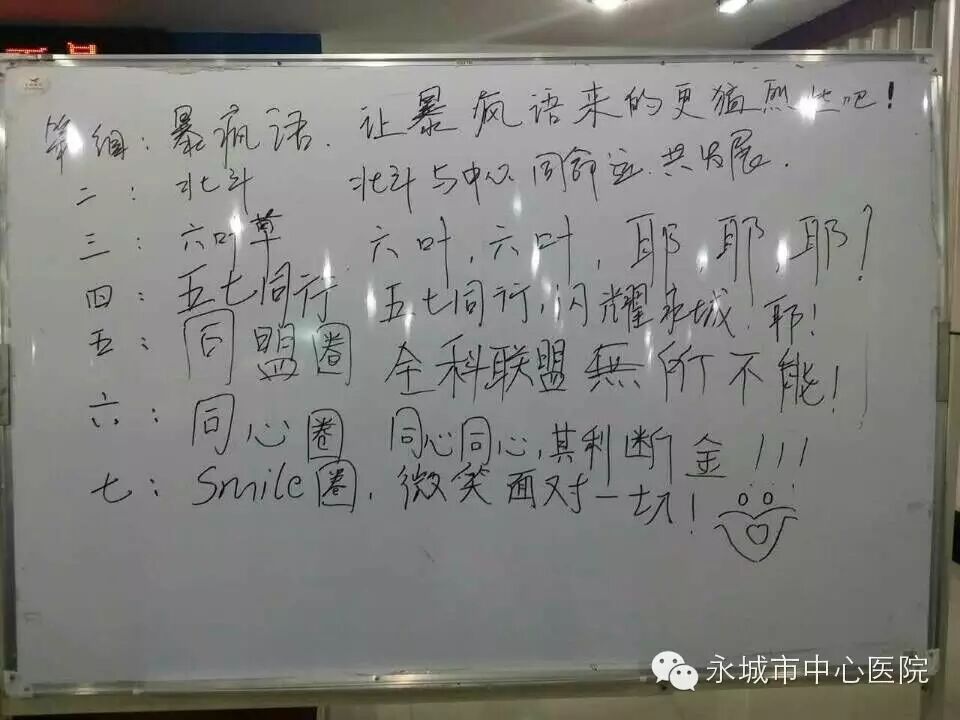 第组：暴疯语. 让暴疯语来的更猛烈些吧！
二：北斗 北斗与中心同命运.共发展.
三：六叶草 六叶,六叶,耶,耶,耶！
四：五七同行 五七同行,闪耀永城.耶！
五：同盟圈 全科联盟無所不能！
六：同心圈 同心同心,其利断金！！！
七：Smile圈, 微笑面对一切！
永城市中心医院